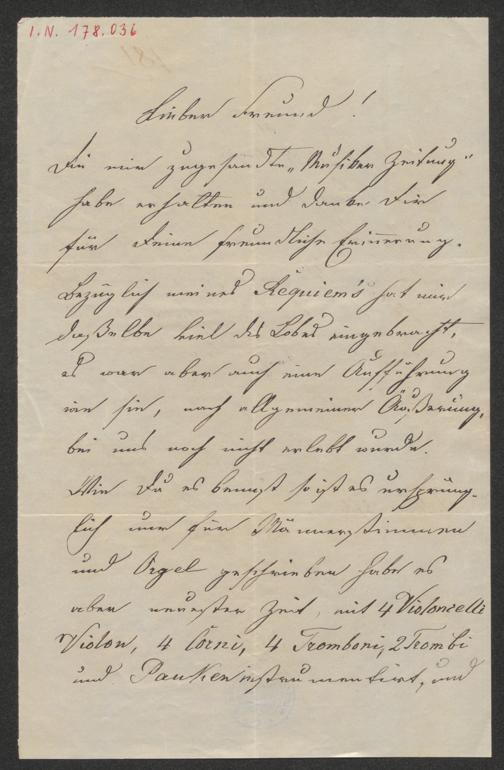 I.N. 178.036
Lieber Freund!
Die mir zugesandte „Musiker Zeitung"
habe erhalten und danke Dir
für Deine freundliche Erinnerung.
Bezüglich meines Requiem's hat mir
daßelbe viel des Lobes eingebracht,
es war aber auch eine Aufführung
wie sie, nach allgemeiner Äußerung,
bei uns noch nicht erlebt wurde.
Wie Du es so ist es ursprüng-
lich nur für Männerstimmen
und Orgel geschrieben habe es
aber neuester Zeit, mit 4 Violoncelli
Violon, 4 Corni, 4 Tromboni, 2 Trombi
und Pauken instrumentirt, und